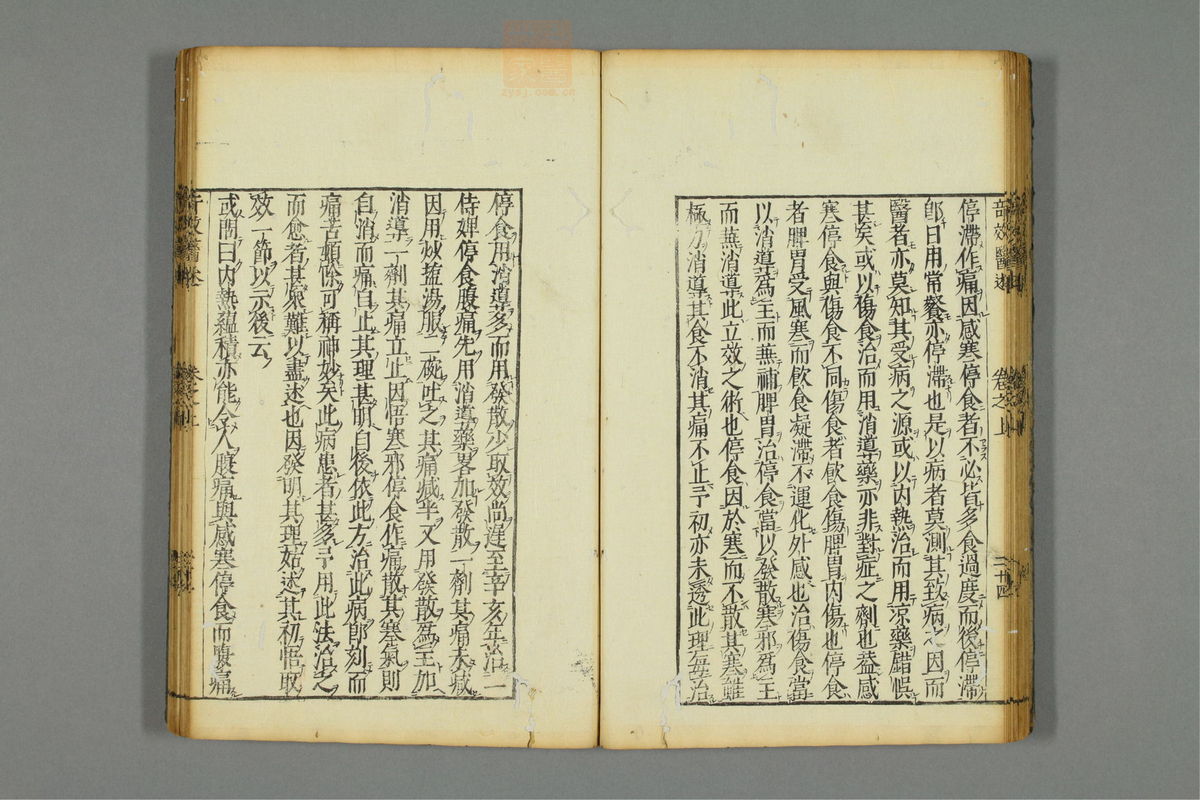 停滯作痛因感寒停食者不必皆多食過度而後停滯
卽日用常餐亦停滯也是以病者莫測其致病之因而
醫者亦莫知其受病之源或以內熱治而用凉藥錯悞
甚矣或以傷食治而用消導藥亦非對症之劑也葢感
寒停食與傷食不同傷食者飮食傷脾胃內傷也停食
者脾胃受風寒而飮食凝滯不運化外感也治傷食當
以消導爲主而兼補脾胃治停食當以發散寒邪爲主
而兼消導此立效之術也停食因於寒而不散其寒雖
極力消導其食不消其痛不止予初亦未透此理每治
節效醫述 卷之上 二十四
停食用消導多而用發散少取效尚遲至辛亥年治一
侍婢停食腹痛先用消導藥畧加發散一劑其痛未減
因用炒鹽湯服二碗吐之其痛減半又用發散爲主加
消導一劑其痛立止因悟寒邪停食作痛散其寒氣則
食自消而痛自止其理甚明白後依此方治此病卽刻而
痛苦頓除可稱神妙矣此病患者甚多予用此法治之
而愈者甚衆難以盡述也因發明其理姑述其初悟取
效一節以示後云
或問曰內熱蘊積亦能令人腹痛與感寒停食而腹痛
zysj.com.cn